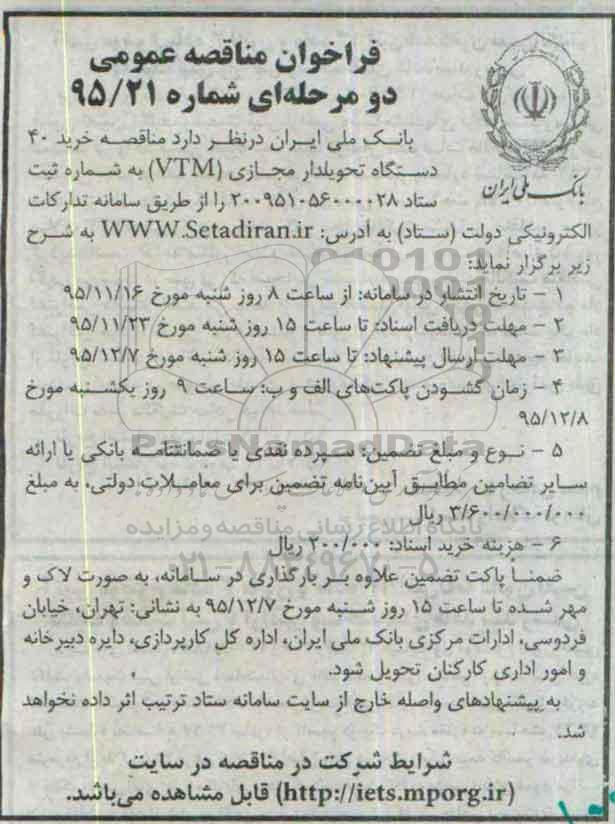 فراخوان مناقصه عمومی
دو مرحله‌ای شماره ۹۵/۲۱
بانک ملی ایران
بانک ملی ایران درنظر دارد مناقصه خرید ۴۰
دستگاه تحویلدار مجازی (VTM) به شماره ثبت
ستاد ۲۰۰۹۵۱۰۵۶۰۰۰۰۲۸ را از طریق سامانه تدارکات
الکترونیکی دولت (ستاد) به آدرس: WWW.Setadiran.ir به شرح
زیر برگزار نماید:
۱ – تاریخ انتشار در سامانه: از ساعت ۸ روز شنبه مورخ ۹۵/۱۱/۱۶
۲ – مهلت دریافت اسناد: تا ساعت ۱۵ روز شنبه مورخ ۹۵/۱۱/۲۳
۳ – مهلت ارسال پیشنهاد: تا ساعت ۱۵ روز شنبه مورخ ۹۵/۱۲/۷
۴ – زمان گشودن پاکت‌های الف و ب: ساعت ۹ روز یکشنبه مورخ
۹۵/۱۲/۸
۵ – نوع و مبلغ تضمین: سپرده نقدی یا ضمانتنامه بانکی یا ارائه
سایر تضامین مطابق آیین‌نامه تضمین برای معاملات دولتی، به مبلغ
۳/۶۰۰/۰۰۰/۰۰۰ ریال
۶ – هزینه خرید اسناد: ۲۰۰/۰۰۰ ریال
ضمناً پاکت تضمین علاوه بر بارگذاری در سامانه، به صورت لاک و
مهر شده تا ساعت ۱۵ روز شنبه مورخ ۹۵/۱۲/۷ به نشانی: تهران، خیابان
فردوسی، ادارات مرکزی بانک ملی ایران، اداره کل کارپردازی، دایره دبیرخانه
و امور اداری کارکنان تحویل شود.
به پیشنهادهای واصله خارج از سایت سامانه ستاد ترتیب اثر داده نخواهد
شد.
شرایط شرکت در مناقصه در سایت
(http://iets.mporg.ir) قابل مشاهده می‌باشد.
ParsNamadData
پایگاه اطلاع رسانی مناقصه و مزایده